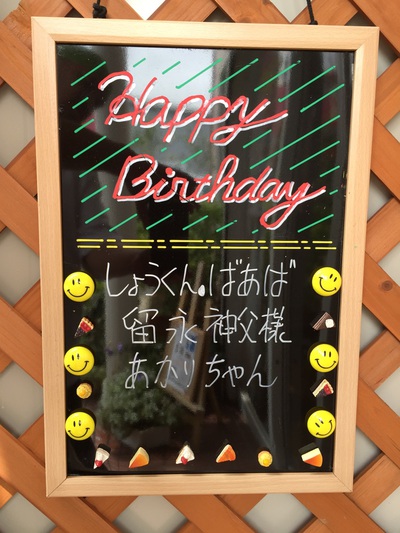 Happy
Birthday
しょうくん。ばあば
留永神父様
あかりちゃん